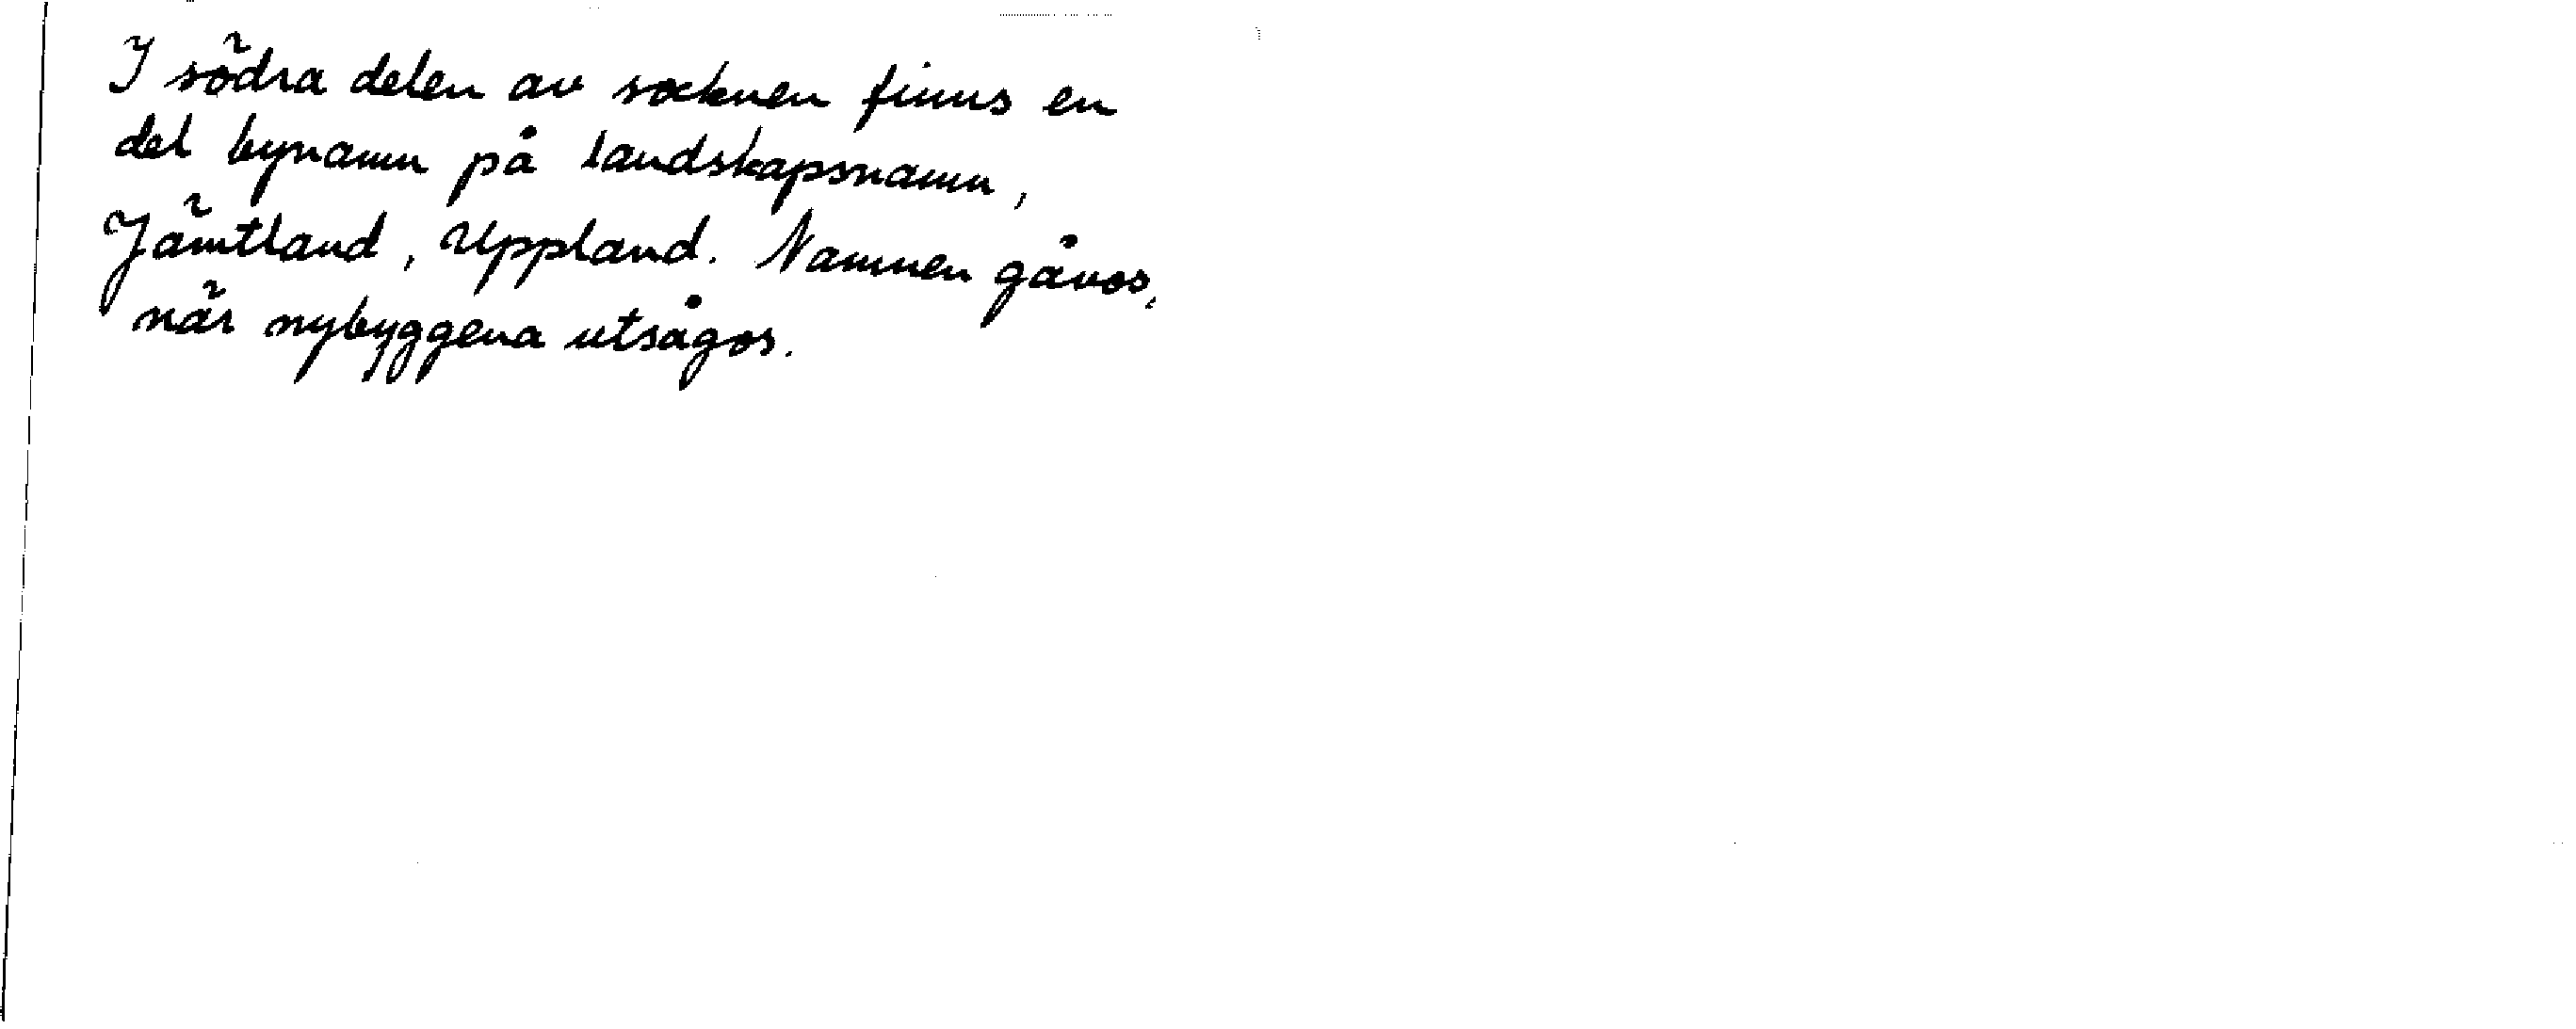 I södra delen av socknen finns en
del bynamn på landskapsnamn,
Jämtland, Uppland. Namnen gåvos,
när nybyggena utsågos.